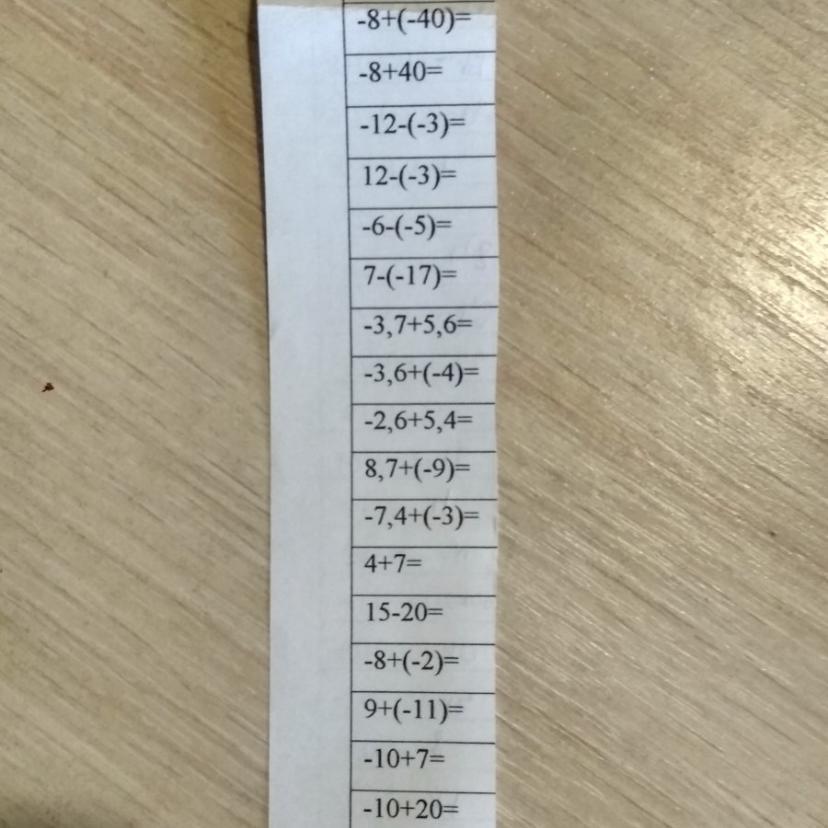 -8+(-40)=
-8+40=
-12-(-3)=
12-(-3)=
-6-(-5)=
7-(-17)=
-3,7+5,6=
-3,6+(-4)=
-2,6+5,4=
8,7+(-9)=
-7,4+(-3)=
4+7=
15-20=
-8+(-2)=
9+(-11)=
-10+7=
-10+20=